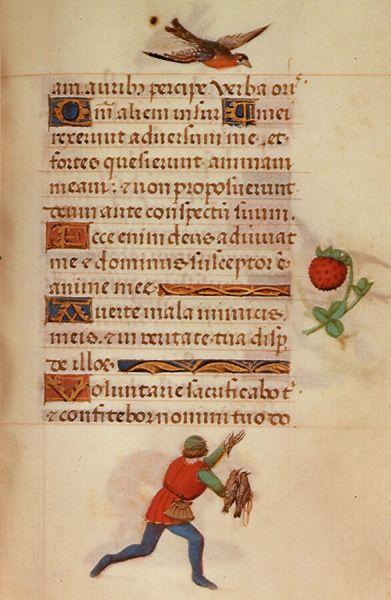 am auribꝰ percipe verba oriˢ
Qm̄ alieni insur mei
rexerunt adversum me, et
fortes quesierunt animam
meam: & non proposuerunt
deum ante conspectū suum.
Ecce enim deus adiuvat
me & dominus susceptor ē
anime mee
Averte mala inimicis
meis. & in veritate tua disp
de illos
Voluntarie sacrificabo tⁱ
& confitebor nomini tuo do